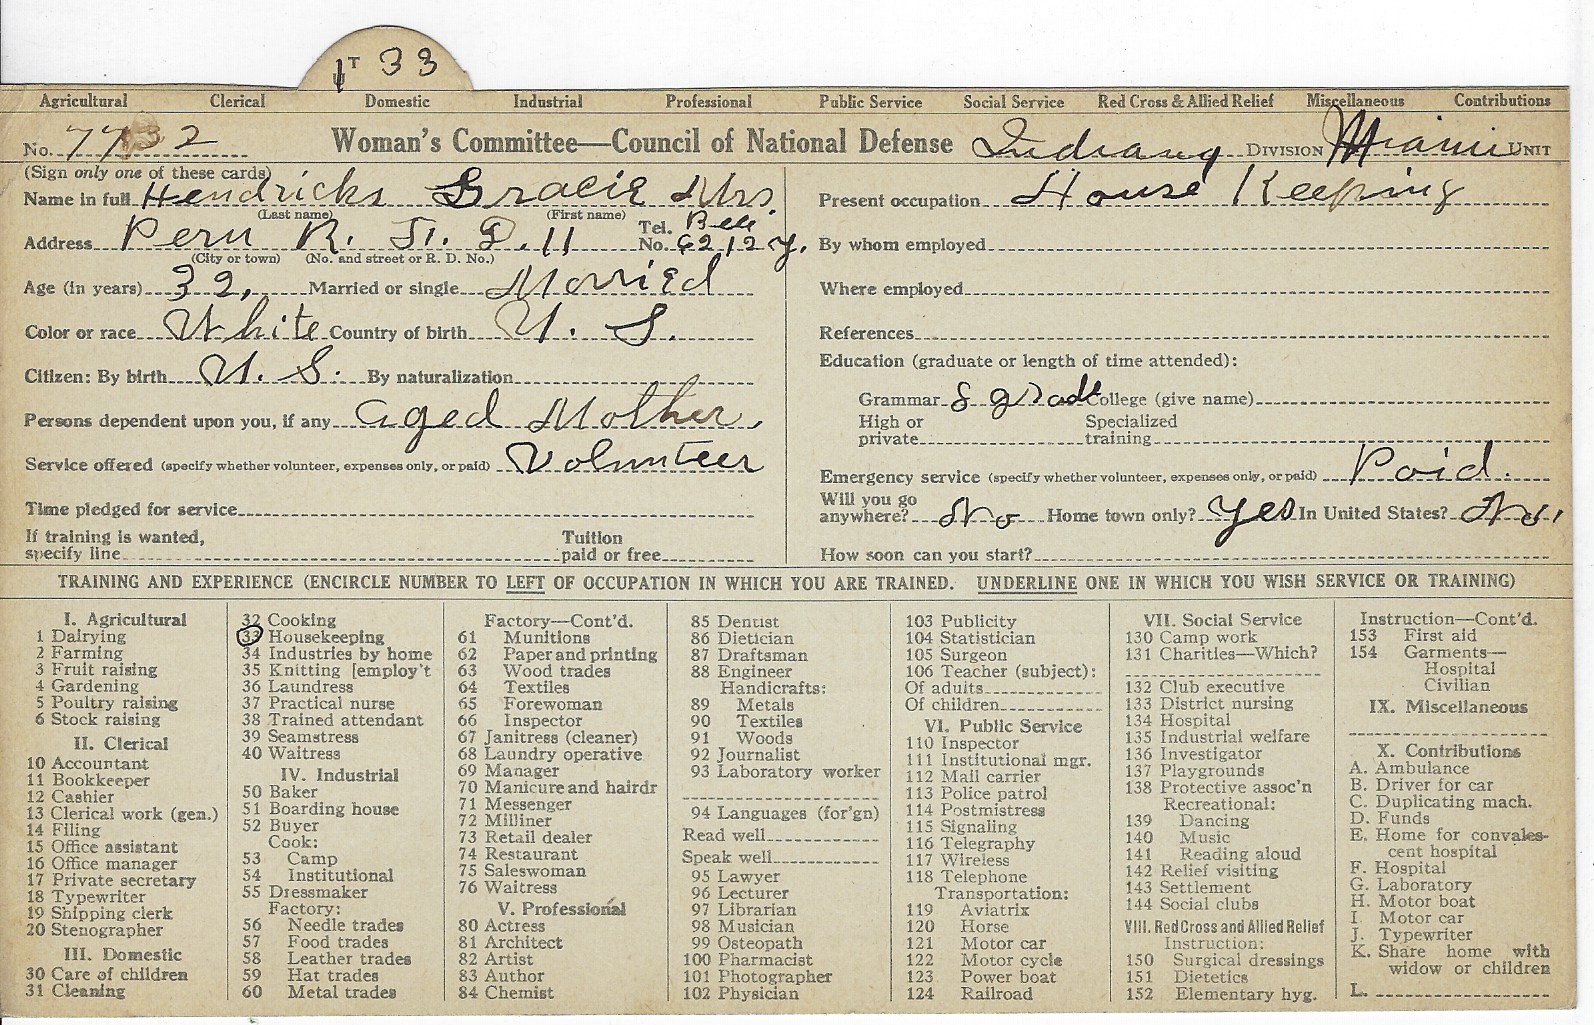 T 33
Agricultural Clerical Domestic Industrial Professional Public Service Social Service Red Cross & Allied Relief Miscellaneous Contributions
No. 7732 Woman's Committee—Council of National Defense Indiana DIVISION Miami UNIT
(Sign only one of these cards)
Name in full Hendricks Gracie Mrs.
(Last name) (First name)
Address Peru R. F. D. 11 Tel. No. Bell 6212 y.
(City or town) (No. and street or R. D. No.)
Age (in years) 32, Married or single Married
Color or race White Country of birth U. S.
Citizen: By birth U. S. By naturalization
Persons dependent upon you, if any aged Mother.
Service offered (specify whether volunteer, expenses only, or paid) Volunteer
Time pledged for service
If training is wanted, specify line Tuition paid or free
Present occupation House Keeping
By whom employed
Where employed
References
Education (graduate or length of time attended):
Grammar 8 grade College (give name)
High or private Specialized training
Emergency service (specify whether volunteer, expenses only, or paid) Paid.
Will you go anywhere? No Home town only? Yes In United States? No.
How soon can you start?
TRAINING AND EXPERIENCE (ENCIRCLE NUMBER TO LEFT OF OCCUPATION IN WHICH YOU ARE TRAINED. UNDERLINE ONE IN WHICH YOU WISH SERVICE OR TRAINING)
I. Agricultural
1 Dairying
2 Farming
3 Fruit raising
4 Gardening
5 Poultry raising
6 Stock raising
II. Clerical
10 Accountant
11 Bookkeeper
12 Cashier
13 Clerical work (gen.)
14 Filing
15 Office assistant
16 Office manager
17 Private secretary
18 Typewriter
19 Shipping clerk
20 Stenographer
III. Domestic
30 Care of children
31 Cleaning
32 Cooking
33 Housekeeping
34 Industries by home
35 Knitting [employ't
36 Laundress
37 Practical nurse
38 Trained attendant
39 Seamstress
40 Waitress
IV. Industrial
50 Baker
51 Boarding house
52 Buyer
Cook:
53 Camp
54 Institutional
55 Dressmaker
Factory:
56 Needle trades
57 Food trades
58 Leather trades
59 Hat trades
60 Metal trades
Factory—Cont'd.
61 Munitions
62 Paper and printing
63 Wood trades
64 Textiles
65 Forewoman
66 Inspector
67 Janitress (cleaner)
68 Laundry operative
69 Manager
70 Manicure and hairdr
71 Messenger
72 Milliner
73 Retail dealer
74 Restaurant
75 Saleswoman
76 Waitress
V. Professional
80 Actress
81 Architect
82 Artist
83 Author
84 Chemist
85 Dentist
86 Dietician
87 Draftsman
88 Engineer
Handicrafts:
89 Metals
90 Textiles
91 Woods
92 Journalist
93 Laboratory worker
94 Languages (for'gn)
Read well
Speak well
95 Lawyer
96 Lecturer
97 Librarian
98 Musician
99 Osteopath
100 Pharmacist
101 Photographer
102 Physician
103 Publicity
104 Statistician
105 Surgeon
106 Teacher (subject):
Of adults
Of children
VI. Public Service
110 Inspector
111 Institutional mgr.
112 Mail carrier
113 Police patrol
114 Postmistress
115 Signaling
116 Telegraphy
117 Wireless
118 Telephone
Transportation:
119 Aviatrix
120 Horse
121 Motor car
122 Motor cycle
123 Power boat
124 Railroad
VII. Social Service
130 Camp work
131 Charities—Which?
132 Club executive
133 District nursing
134 Hospital
135 Industrial welfare
136 Investigator
137 Playgrounds
138 Protective assoc'n
Recreational:
139 Dancing
140 Music
141 Reading aloud
142 Relief visiting
143 Settlement
144 Social clubs
VIII. Red Cross and Allied Relief
Instruction:
150 Surgical dressings
151 Dietetics
152 Elementary hyg.
Instruction—Cont'd.
153 First aid
154 Garments—
Hospital
Civilian
IX. Miscellaneous
X. Contributions
A. Ambulance
B. Driver for car
C. Duplicating mach.
D. Funds
E. Home for convales-
cent hospital
F. Hospital
G. Laboratory
H. Motor boat
I. Motor car
J. Typewriter
K. Share home with
widow or children
L.